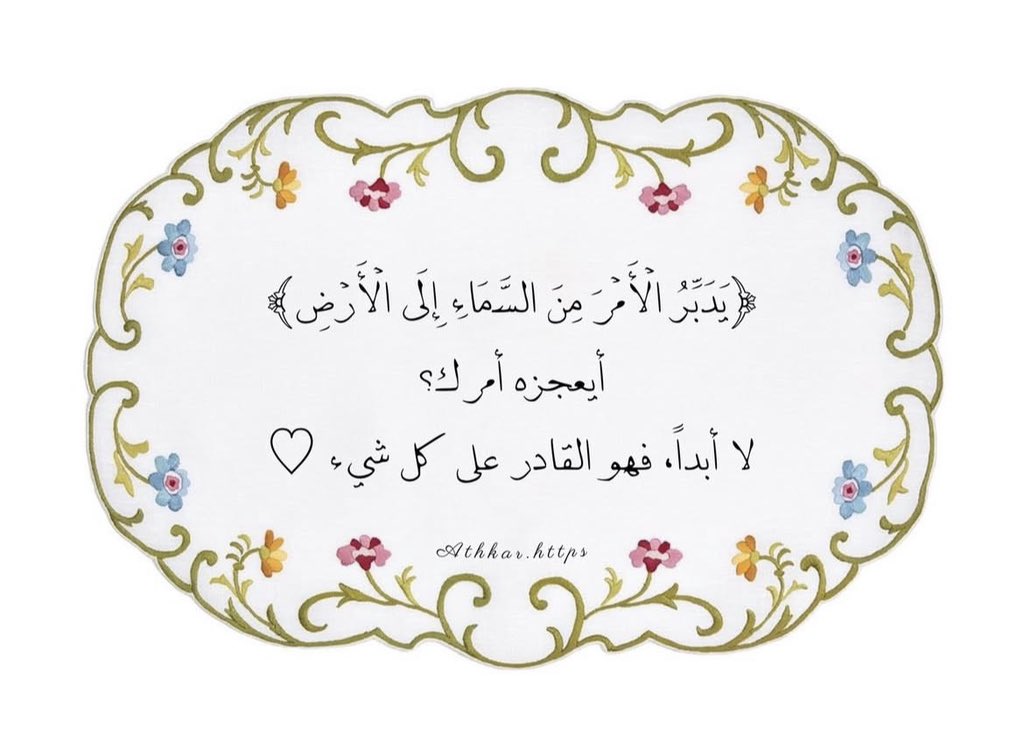 ﴿يَدَبِّرُ الۡأَمۡرَ مِنَ السَّمَاءِ إِلَى الۡأَرۡضِ﴾
أيعجزه أمرك؟
لا أبداً، فهو القادر على كل شيء ♡
Athkar.https